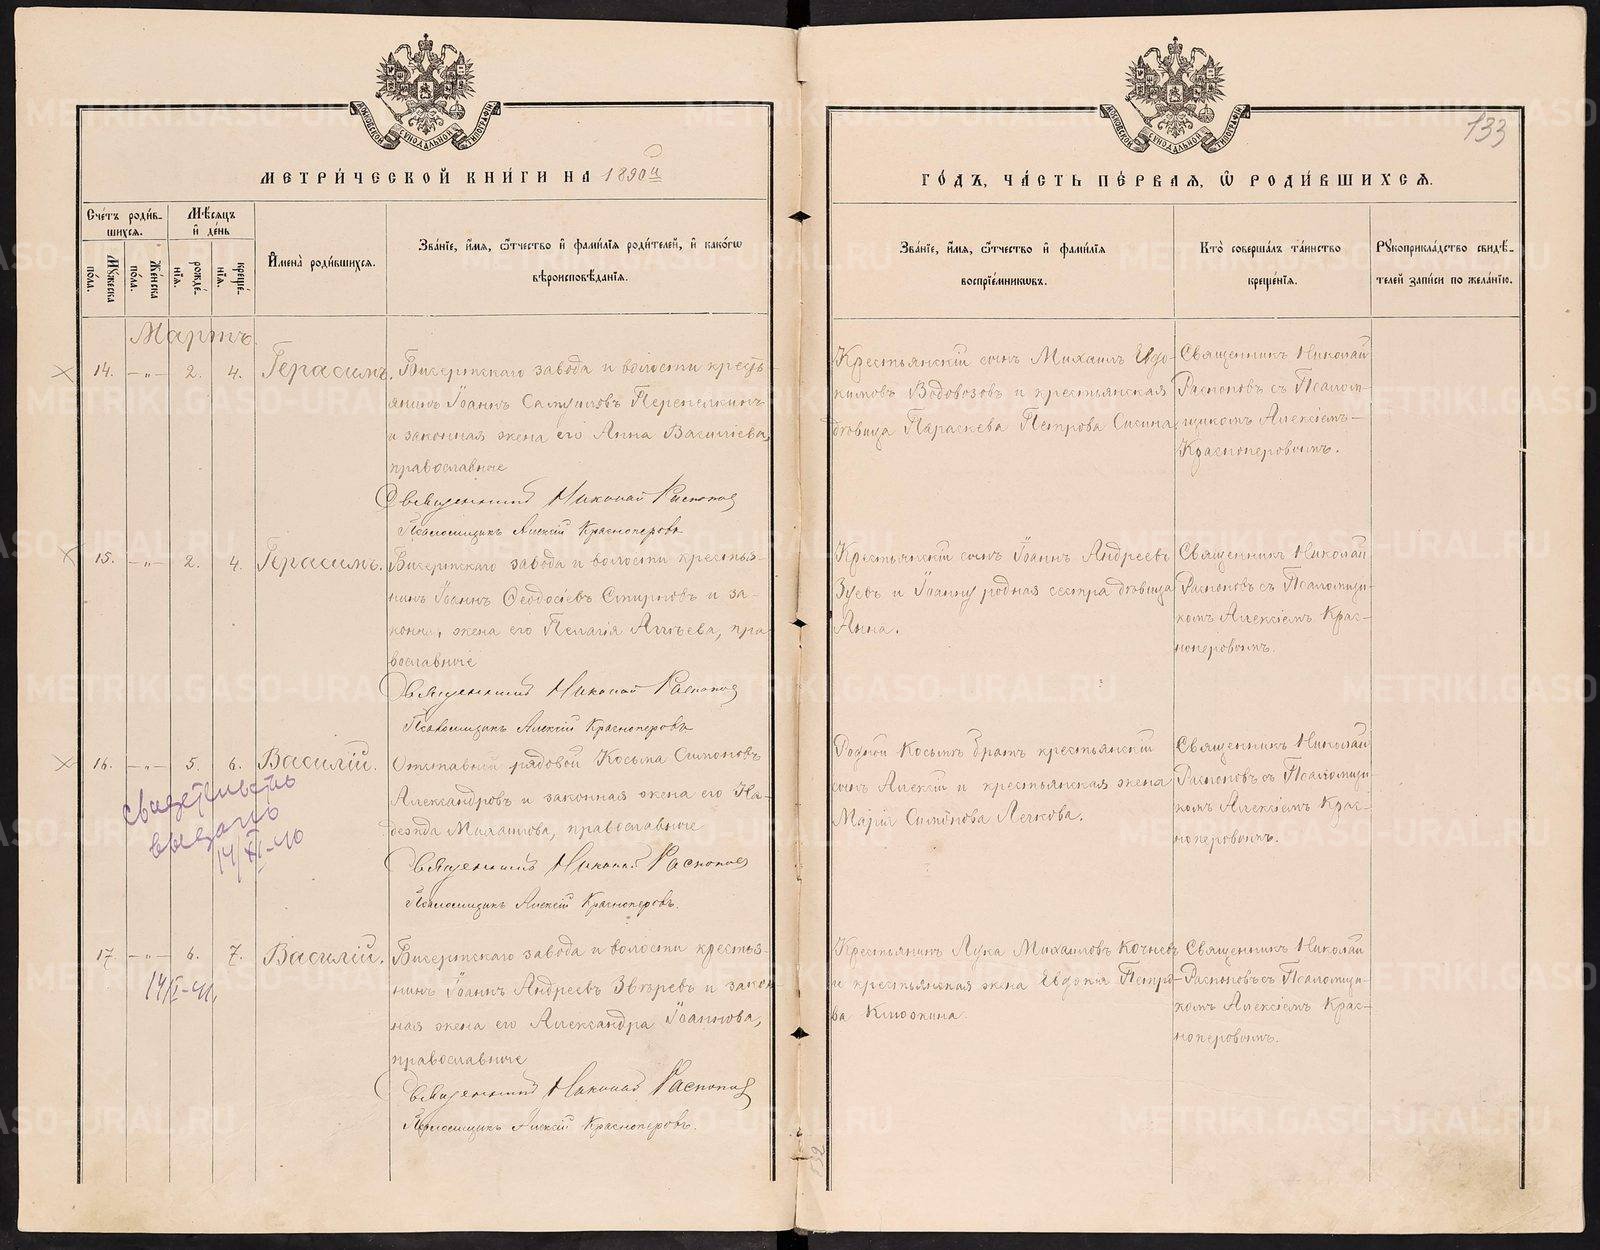 МЕТРИ́ЧЕСКОЙ КНИ́ГИ НА 1890й
Сче́тъ роди́в-
шихсѧ.
Му́жеска
по́ла.
Же́нска
по́ла.
Мѣ́сѧцъ
и҆ де́нь
рожде́-
нїѧ.
креще́-
нїѧ.
И҆мена̀ роди́вшихсѧ.
Зва́нїе, и҆́мѧ, ѻ҆́тчество и҆ фами́лїѧ роди́телей, и҆ како́гѡ
вѣроисповѣ́данїѧ.
Мартъ.
14. —„— 2. 4. Герасимъ. Бисертскаго завода и волости кресть-
янинъ Іоаннъ Самуиловъ Перепелкинъ
и законная жена его Анна Василіева,
православные
Священникъ Николай Распоповъ
Псаломщикъ Алексій Красноперовъ
15. —„— 2. 4. Герасимъ. Бисертскаго завода и волости крестья-
нинъ Іоаннъ Ѳеодосіевъ Смирновъ и за-
конн. жена его Пелагія Алпьева, пра-
вославные
Священникъ Николай Распоповъ
Псаломщикъ Алексій Красноперовъ
16. —„— 5. 6. Василій. Отставной рядовой Косьма Симоновъ
Александровъ и законная жена его На-
дежда Михаилова, православные
свидетельство
выдано
14/XI-40
Священникъ Николай Распоповъ
Псаломщикъ Алексій Красноперовъ.
17. —„— 6. 7. Василій. Бисертскаго завода и волости крестья-
14/I-41.
нинъ Іоаннъ Андреевъ Звѣревъ и закон-
ная жена его Александра Іоаннова,
православные
Священникъ Николай Распоповъ
Псаломщикъ Алексій Красноперовъ.
133
ГО́ДЪ, ЧА́СТЬ ПЕ́РВАѦ, Ѡ҆ РОДИ́ВШИХСѦ.
Зва́нїе, и҆́мѧ, ѻ҆́тчество и҆ фами́лїѧ
воспрїе́мникѡвъ.
Кто̀ соверша́лъ та́инство
креще́нїѧ.
Рꙋкоприкла́дство свидѣ́-
телей за́писи по жела́нїю.
Крестьянскій сынъ Михаилъ Евдо-
кимовъ Водовозовъ и крестьянская
дѣвица Параскева Петрова Сисина.
Священникъ Николай
Распоповъ съ Псалом-
щикомъ Алексіемъ
Красноперовымъ.
Крестьянскій сынъ Іоаннъ Андреевъ
Зуевъ и Іоанну родная сестра дѣвица
Анна.
Священникъ Николай
Распоповъ съ Псаломщи-
комъ Алексіемъ Крас-
ноперовымъ.
Родной Косьмы братъ крестьянскій
сынъ Алексій и крестьянская жена
Марія Симонова Лечкова.
Священникъ Николай
Распоповъ съ Псаломщи-
комъ Алексіемъ Крас-
ноперовымъ.
Крестьянинъ Лука Михаиловъ Кочневъ
и крестьянская жена Евдокія Петро-
ва Клюкина.
Священникъ Николай
Распоповъ съ Псаломщи-
комъ Алексіемъ Крас-
ноперовымъ.
132
METRIKI.GASO-URAL.RU